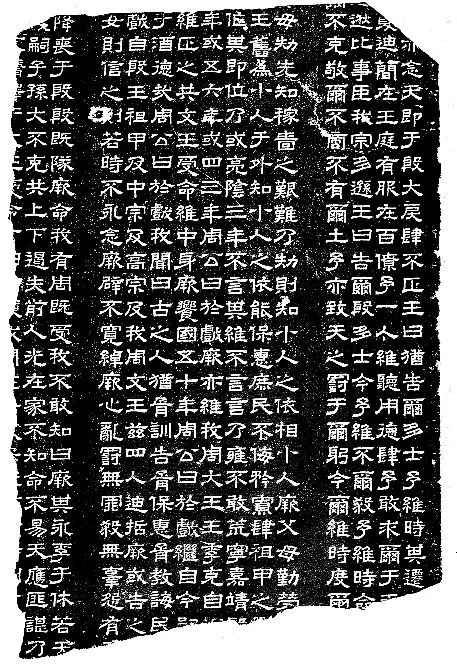 亦念天即于殷大戾肆不正王曰猶告爾多士予維時其遷
迪簡在王庭有服在百僚予一人維聽用德肆予敢求爾于
遜比事臣我宗多遜王曰告爾殷多士今予維不爾殺予維時命
不克敬爾不啻不有爾土予亦致天之罰于爾躬今爾維時度爾
毋劮先知稼嗇之艱難乃劮則知小人之依相小人厥父母勤勞
王舊為小人于外知小人之依能保惠庶民不侮矜寡肆祖甲之
作其即位乃或亮陰三年不言其維不言言乃雍不敢荒寧嘉靖
年或五六年或四三年周公曰於戲厥亦維我周大王王季克自
維正之共文王受命維中身厥饗國五十年周公曰於戲繼自今嗣
于酒德哉周公曰於戲我聞曰古之人猶胥訓告胥保惠胥教誨民
戲自殷王祖甲及中宗及高宗及我周文王茲四人迪哲厥或告之
女則信之則若時不永念厥辟不寬綽厥心亂罰無罪殺無辜怨有
降喪于殷殷既隊厥命我有周既受我不敢知曰厥其永孚于休若
嗣子孫大不克共上下遏失前人光在家不知命不易天應匪諶乃